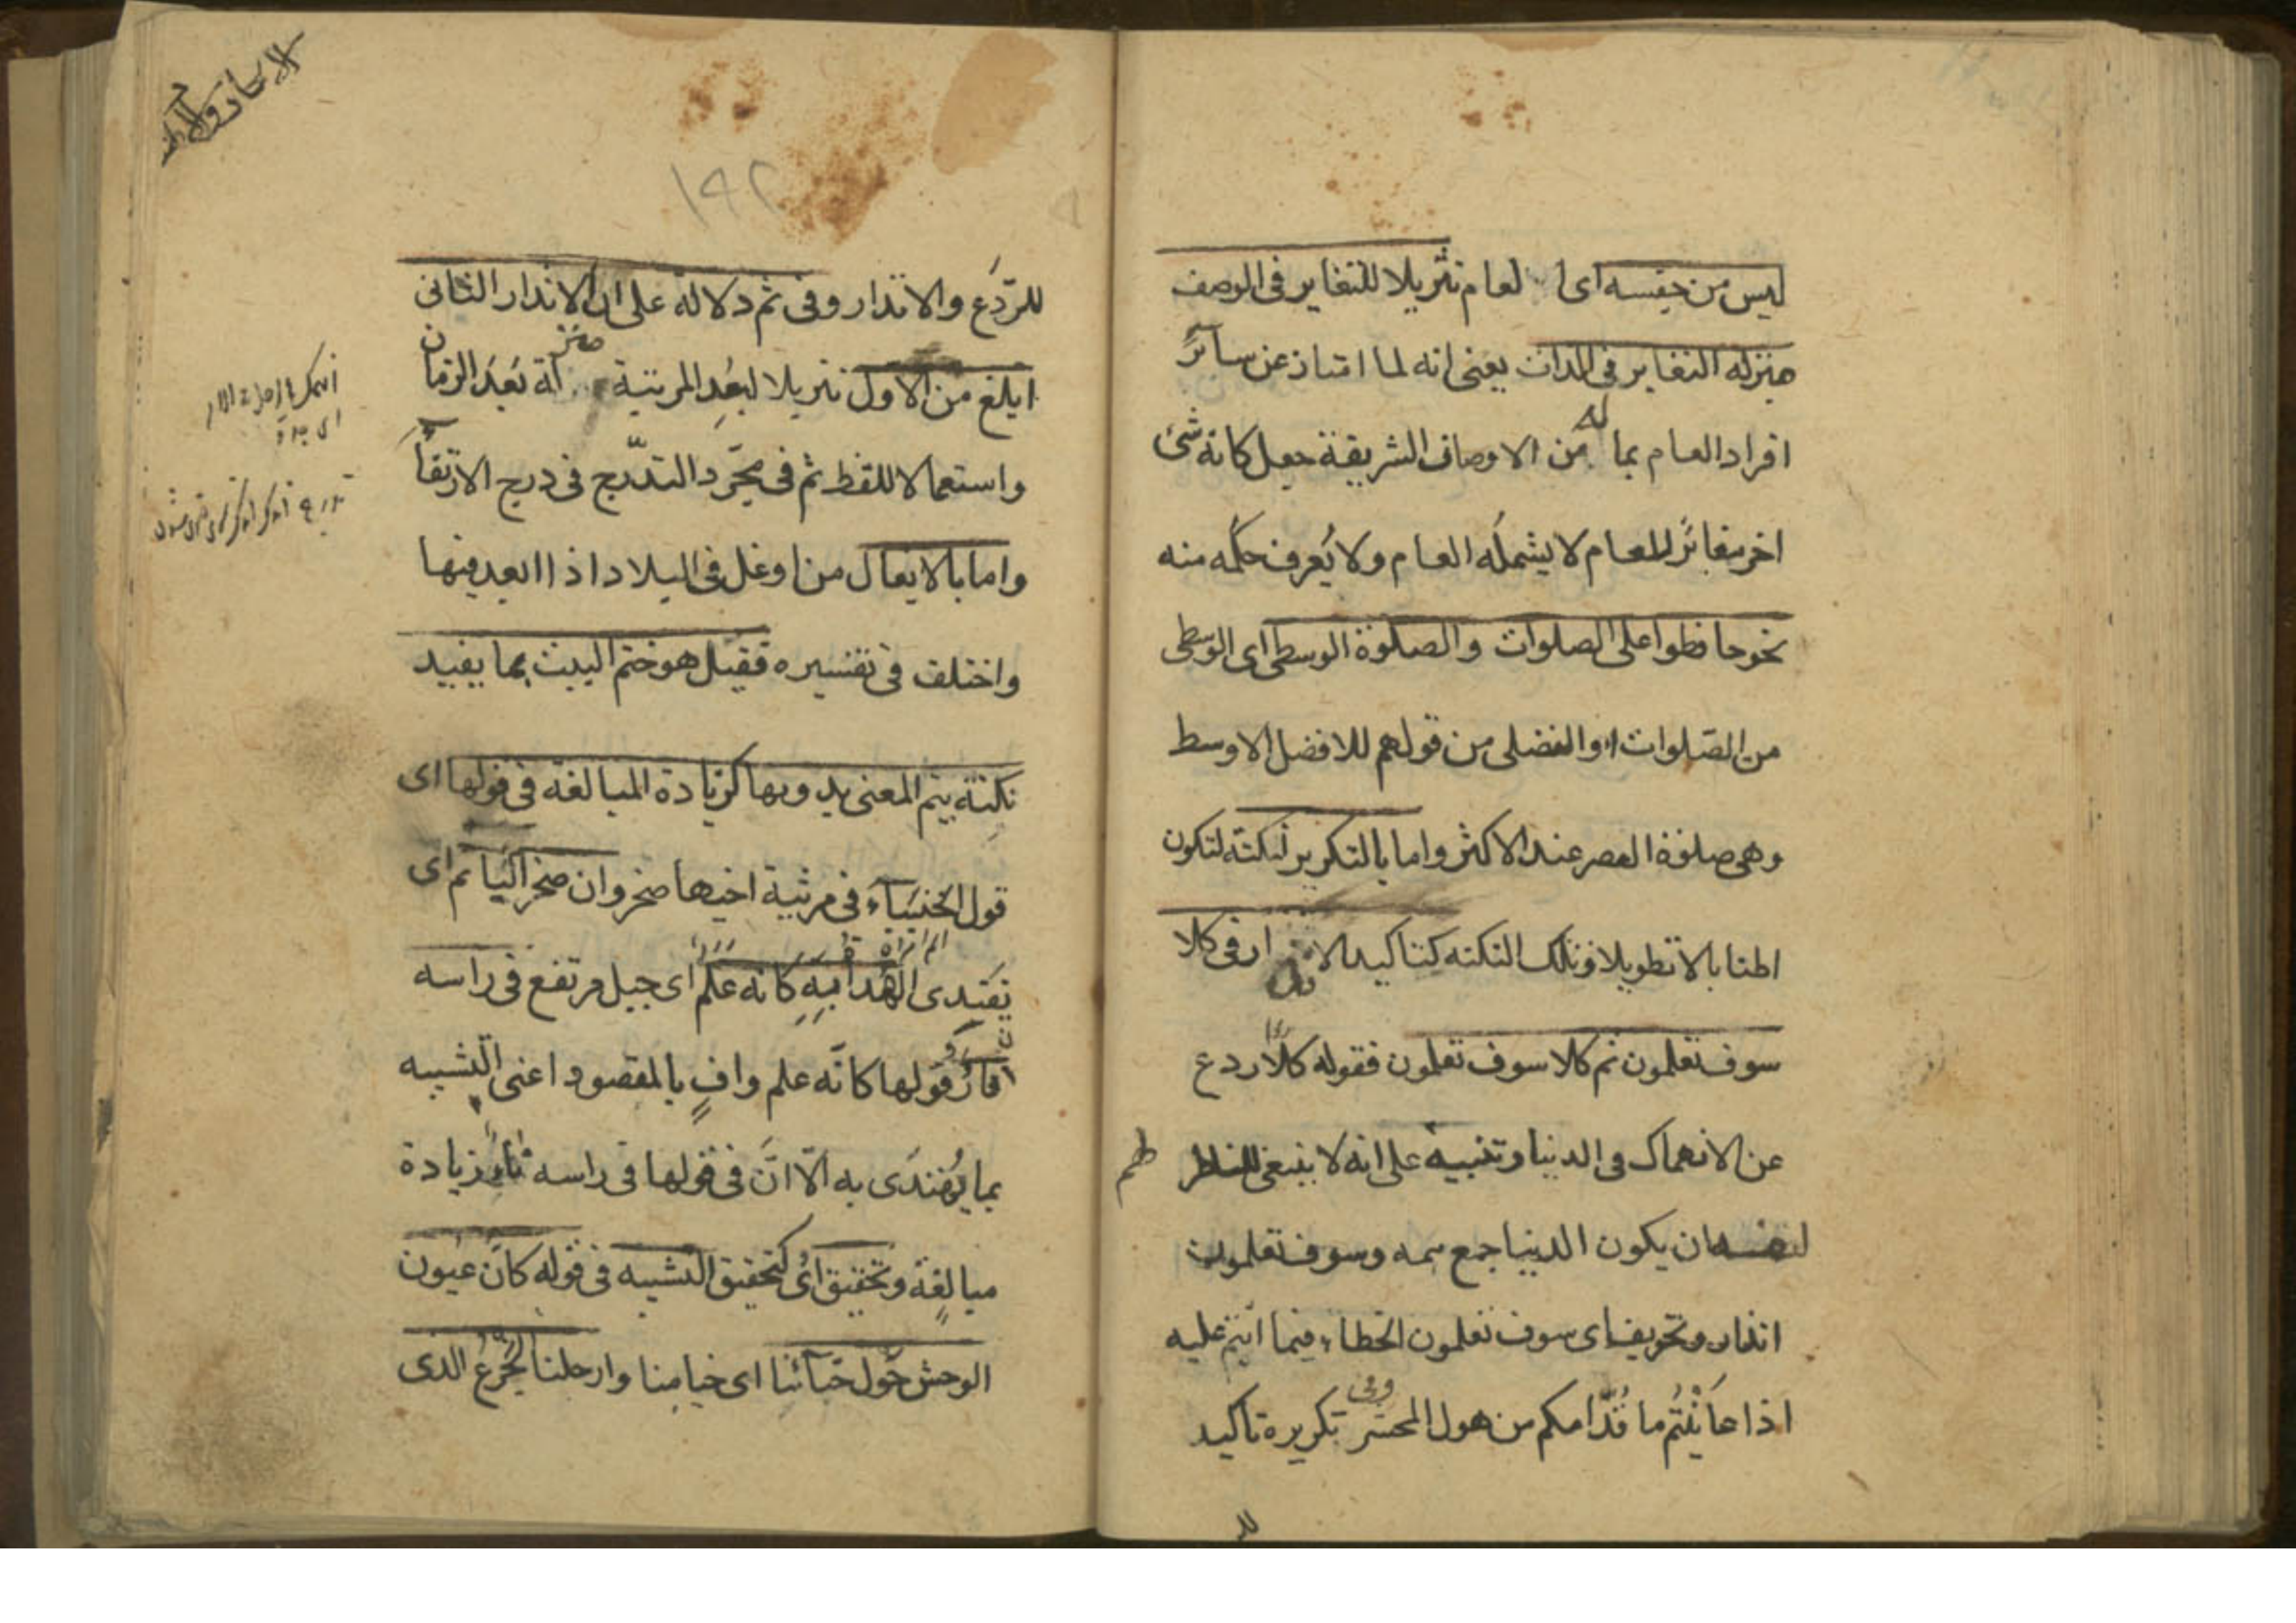 ليس من جنسه اى العام تنزيلا للتغاير فى الوصف
منزلة التغاير فى الذات يعنى انه لما امتاز عن سائر
افراد العام بما له من الاوصاف الشريفة جعل كانه شئ
اخر مغائر للعام لا يشمله العام ولا يعرف حكمه منه
نحو حافظوا على الصلوات والصلوة الوسطى اى الوسطى
من الصلوات او الفضلى من قولهم للافضل الاوسط
وهى صلوة العصر عند الاكثر واما بالتكرير لنكتة لتكون
اطنابا لا تطويلا وتلك النكتة كتاكيد الانذار فى كلا
سوف تعلمون ثم كلا سوف تعلمون فقوله كلا ردع
عن الانهماك فى الدنيا وتنبيه على انه لا ينبغى للناظر
لنفسه ان يكون الدنيا جمع همه وسوف تعلمون
انذار وتخويف اى سوف تعلمون الخطاء فيما انتم عليه
اذا عاينتم ما قدامكم من هول المحشر وفى تكريره تاكيد
للردع والانذار وفى ثم دلالة على ان الانذار الثانى
ابلغ من الاول تنزيلا لبعد المرتبة منزلة بعد الزمان
واستعمالا للفظ ثم فى مجرد التدرج فى درج الارتقاء
واما بالايغال من اوغل فى البلاد اذا ابعد فيها
واختلف فى تفسيره فقيل هو ختم البيت بما يفيد
نكتة يتم المعنى بدونها كزيادة المبالغة فى قولها اى
قول الخنساء فى مرثية اخيها صخر وان صخرا لتاتم اى
تقتدى الهداة به كانه علم اى جبل مرتفع فى راسه
نار فقولها كانه علم واف بالمقصود اعنى التشبيه
بما يهتدى به الا ان فى قولها فى راسه نار زيادة
مبالغة وتحقيق اى كتحقيق التشبيه فى قوله كان عيون
الوحش حول خبائنا اى خيامنا وارحلنا الجزع الذى
١٩٢